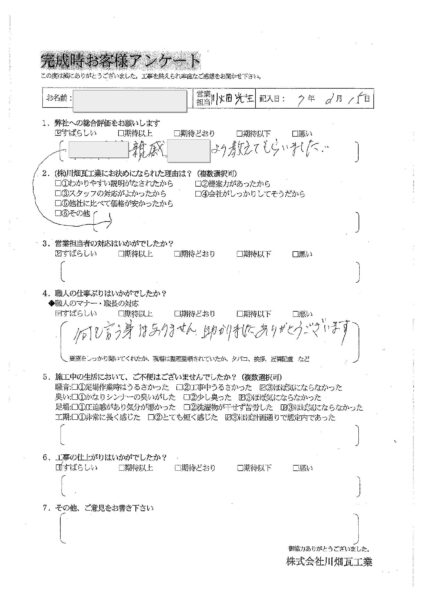 完成時お客様アンケート
この度は誠にありがとうございました。工事を終えられ率直なご感想をお聞かせ下さい。
お名前:
営業担当 川畑先生 記入日: 7年 2月 15日
1. 弊社への総合評価をお願いします
☑すばらしい □期待以上 □期待どおり □期待以下 □悪い
親戚 より教えてもらいました。
2. (株)川畑瓦工業にお決めになられた理由は? (複数選択可)
□①わかりやすい説明がなされたから □②提案力があったから
□③スタッフの対応がよかったから □④会社がしっかりしてそうだから
□⑤他社に比べて価格が安かったから
□⑥その他
3. 営業担当者の対応はいかがでしたか?
□すばらしい □期待以上 □期待どおり □期待以下 □悪い
4. 職人の仕事ぶりはいかがでしたか?
◆職人のマナー・職長の対応
☑すばらしい □期待以上 □期待どおり □期待以下 □悪い
何も言う事はありません 助かりましたありがとうございます
要望をしっかり聞いてくれたか、現場は整理整頓されていたか、タバコ、挨拶、近隣配慮 など
5. 施工中の生活において、ご不便はございませんでしたか? (複数選択可)
騒音:□①足場作業時はうるさかった □②工事中うるさかった ☑③ほぼ気にならなかった
臭い:□①かなりシンナーの臭いがした □②少し臭った ☑③ほぼ気にならなかった
足場:□①圧迫感があり気分が悪かった □②洗濯物が干せず苦労した ☑③ほぼ気にならなかった
工期:□①非常に長く感じた □②とても短く感じた ☑③ほぼ計画通りで想定内であった
6. 工事の仕上がりはいかがでしたか?
☑すばらしい □期待以上 □期待どおり □期待以下 □悪い
7. その他、ご意見をお書き下さい
御協力ありがとうございました。
株式会社川畑瓦工業